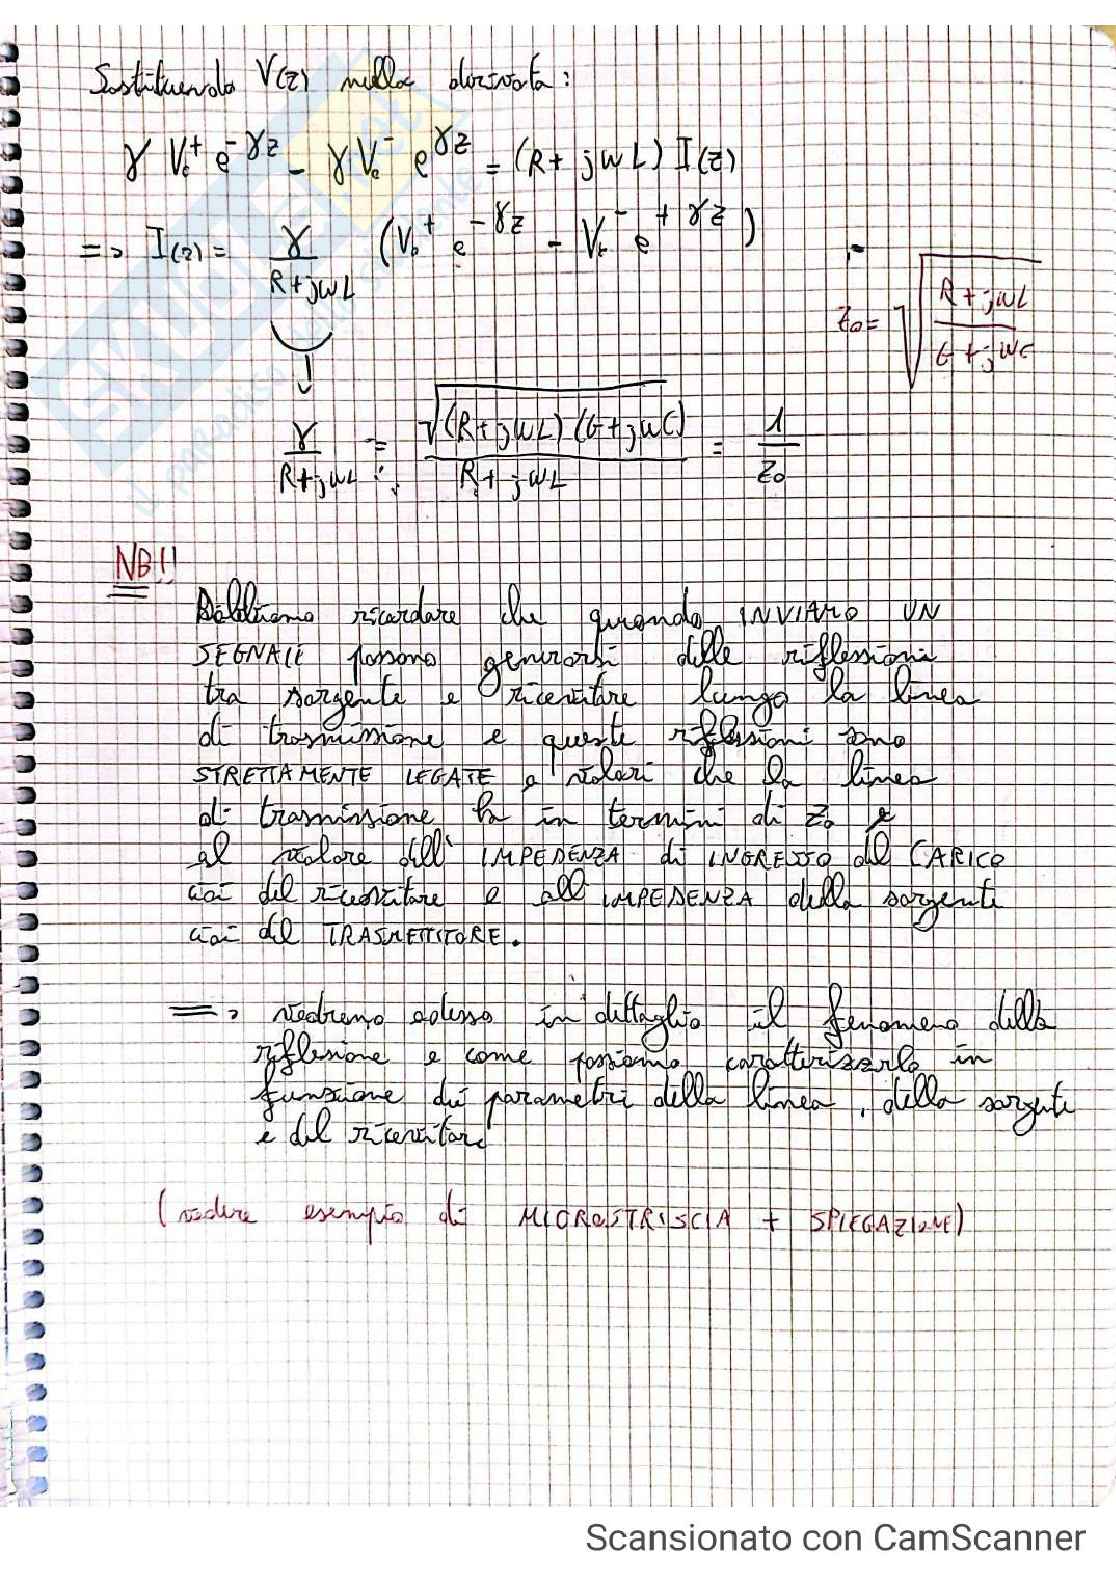 Sostituendo V(z) nella derivata:
γ V₀⁺ e^{-γz} - γ V₀⁻ e^{γz} = (R + jωL) I(z)
=> I(z) = γ / (R + jωL) (V₀⁺ e^{-γz} - V₀⁻ e^{+γz})
Z₀ = √((R + jωL) / (G + jωC))
γ / (R + jωL) = √((R + jωL) (G + jωC)) / (R + jωL) = 1 / Z₀
NB!!
Dobbiamo ricordare che quando INVIAMO UN
SEGNALE possono generarsi delle riflessioni
tra sorgente e ricevitore lungo la linea
di trasmissione e queste riflessioni sono
STRETTAMENTE LEGATE a valori che la linea
di trasmissione ha in termini di Z₀ e
al valore dell' IMPEDENZA di INGRESSO del CARICO
cioè del ricevitore e all IMPEDENZA della sorgente
cioè del TRASMETTITORE.
=> vedremo adesso in dettaglio il fenomeno della
riflessione e come possiamo caratterizzarlo in
funzione dei parametri della linea, della sorgente
e del ricevitore
(vedere esempio di MICROSTRISCIA + SPIEGAZIONE)
Scansionato con CamScanner